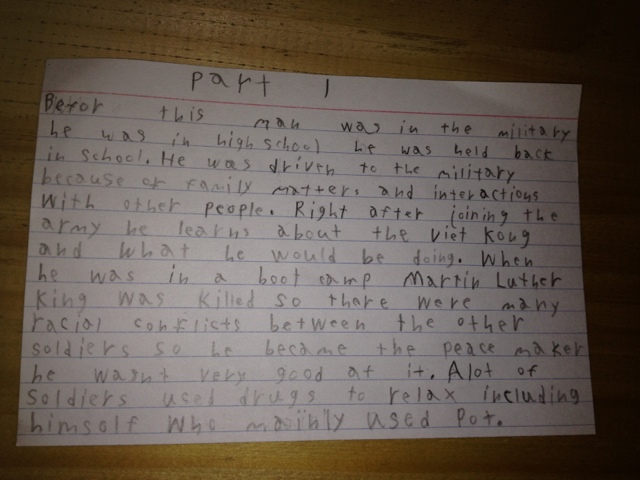 Part 1
Befor this man was in the military
he was in high school he was held back
in school. He was driven to the military
because of family matters and interactions
With other people. Right after joining the
army he learns about the Viet Kong
and what he would be doing. When
he was in a boot camp Martin Luther
King was killed so there were many
racial conflicts between the other
soldiers so he became the peace maker
he wasnt very good at it. Alot of
soldiers used drugs to relax including
himself who mainly used Pot.